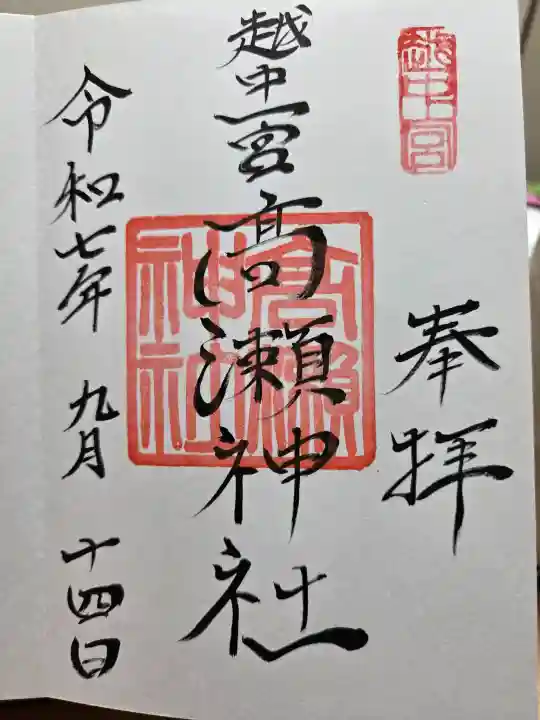 越中一宮
奉拝
越中一宮高瀬神社
高瀬神社
令和七年九月十四日